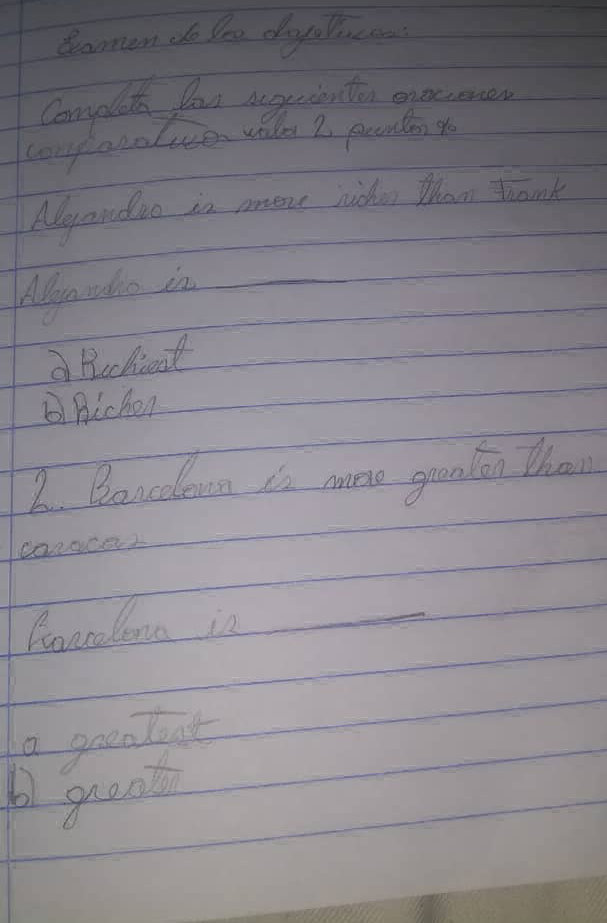 Examen de los adjetivos:
Completa las siguientes oraciones
comparativo valor 2 puntos
Alejandro is more richer than Frank
Alejandro is
a) Richiest
b) Richer
2. Barcelona is more greater than
caracas
Barcelona is
a greatest
b) greater